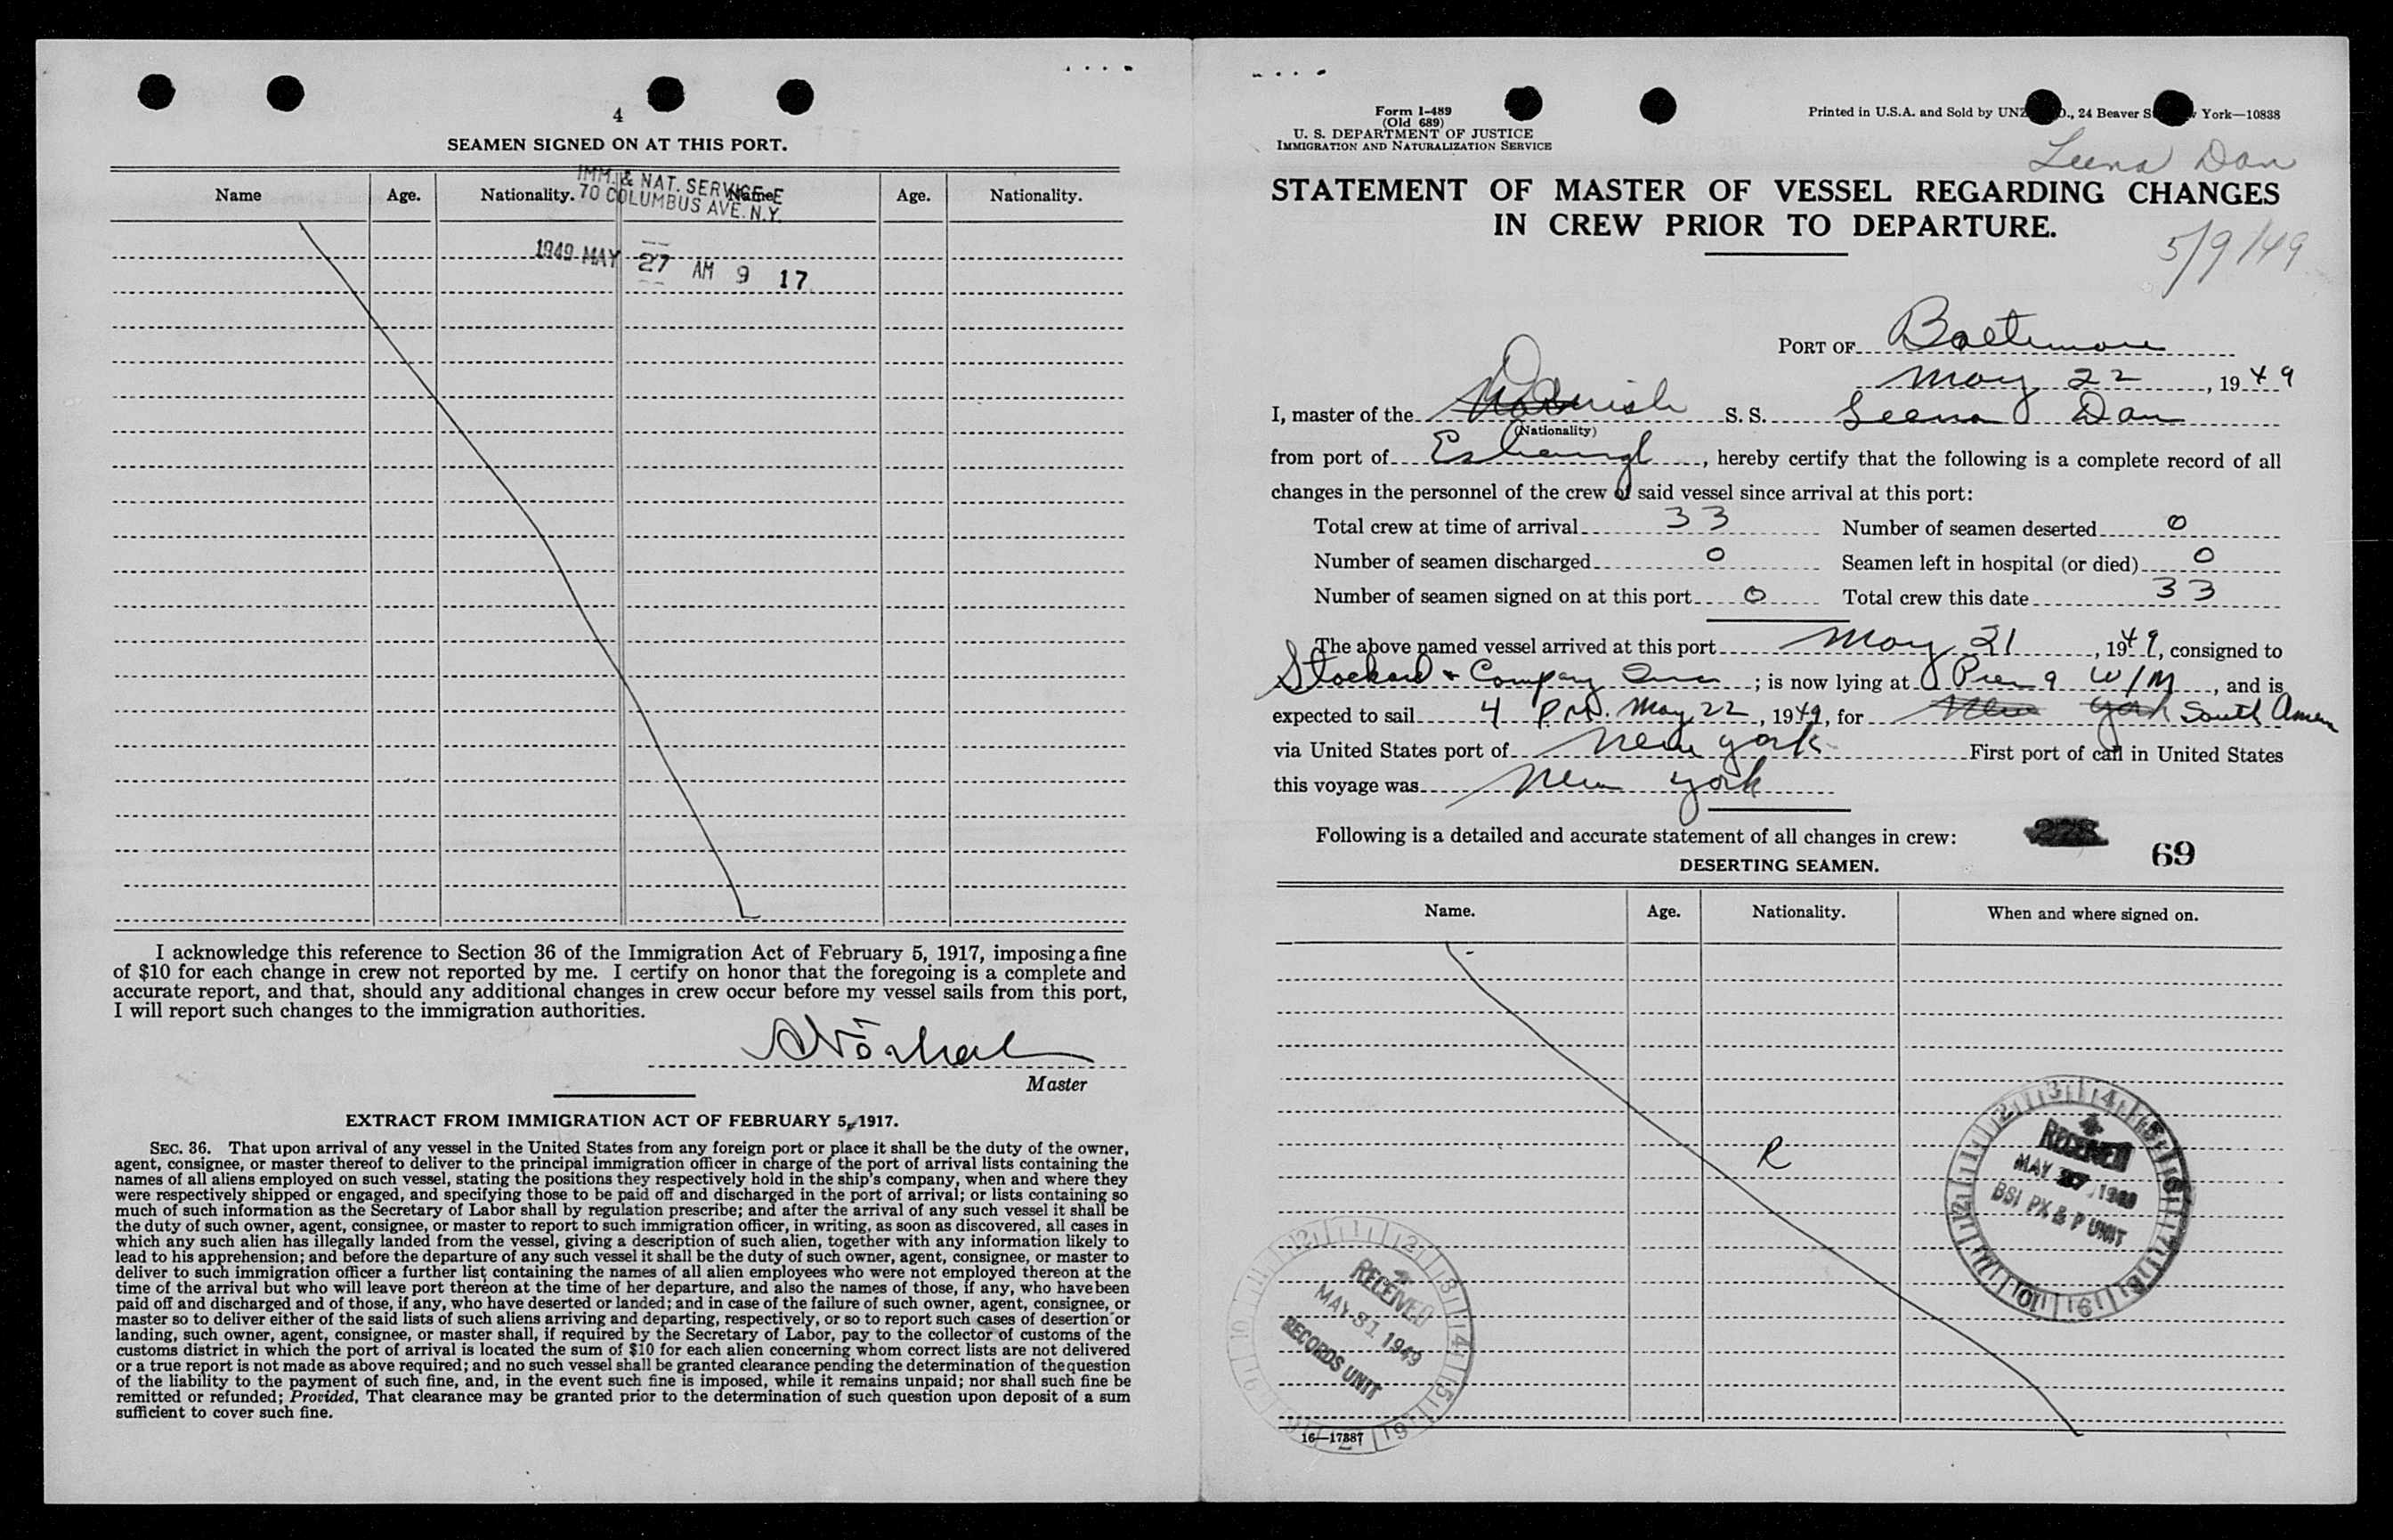 4
SEAMEN SIGNED ON AT THIS PORT.
Name Age. Nationality. Name Age. Nationality.
IMM. & NAT. SERVICE
70 COLUMBUS AVE. N.Y.
1949 MAY 27 AM 9 17
I acknowledge this reference to Section 36 of the Immigration Act of February 5, 1917, imposing a fine
of $10 for each change in crew not reported by me. I certify on honor that the foregoing is a complete and
accurate report, and that, should any additional changes in crew occur before my vessel sails from this port,
I will report such changes to the immigration authorities.
Master
EXTRACT FROM IMMIGRATION ACT OF FEBRUARY 5, 1917.
SEC. 36. That upon arrival of any vessel in the United States from any foreign port or place it shall be the duty of the owner,
agent, consignee, or master thereof to deliver to the principal immigration officer in charge of the port of arrival lists containing the
names of all aliens employed on such vessel, stating the positions they respectively hold in the ship's company, when and where they
were respectively shipped or engaged, and specifying those to be paid off and discharged in the port of arrival; or lists containing so
much of such information as the Secretary of Labor shall by regulation prescribe; and after the arrival of any such vessel it shall be
the duty of such owner, agent, consignee, or master to report to such immigration officer, in writing, as soon as discovered, all cases in
which any such alien has illegally landed from the vessel, giving a description of such alien, together with any information likely to
lead to his apprehension; and before the departure of any such vessel it shall be the duty of such owner, agent, consignee, or master to
deliver to such immigration officer a further list containing the names of all alien employees who were not employed thereon at the
time of the arrival but who will leave port thereon at the time of her departure, and also the names of those, if any, who have been
paid off and discharged and of those, if any, who have deserted or landed; and in case of the failure of such owner, agent, consignee, or
master so to deliver either of the said lists of such aliens arriving and departing, respectively, or so to report such cases of desertion or
landing, such owner, agent, consignee, or master shall, if required by the Secretary of Labor, pay to the collector of customs of the
customs district in which the port of arrival is located the sum of $10 for each alien concerning whom correct lists are not delivered
or a true report is not made as above required; and no such vessel shall be granted clearance pending the determination of the question
of the liability to the payment of such fine, and, in the event such fine is imposed, while it remains unpaid; nor shall such fine be
remitted or refunded; Provided, That clearance may be granted prior to the determination of such question upon deposit of a sum
sufficient to cover such fine.
Form I-489
(Old 689)
U. S. DEPARTMENT OF JUSTICE
IMMIGRATION AND NATURALIZATION SERVICE
Printed in U.S.A. and Sold by UNZ 24 Beaver York—10838
Leena Dan
STATEMENT OF MASTER OF VESSEL REGARDING CHANGES
IN CREW PRIOR TO DEPARTURE.
5/9/49
PORT OF Baltimore
May 22, 1949
I, master of the Danish S. S. Leena Dan
(Nationality)
from port of , hereby certify that the following is a complete record of all
changes in the personnel of the crew of said vessel since arrival at this port:
Total crew at time of arrival 33 Number of seamen deserted 0
Number of seamen discharged 0 Seamen left in hospital (or died) 0
Number of seamen signed on at this port 0 Total crew this date 33
The above named vessel arrived at this port May 21, 1949, consigned to
Stockard & Company Inc; is now lying at Pier 9 W/M, and is
expected to sail 4 P.M. May 22, 1949, for New York South Amer
via United States port of New York First port of call in United States
this voyage was New York
Following is a detailed and accurate statement of all changes in crew:
69
DESERTING SEAMEN.
Name. Age. Nationality. When and where signed on.
R
RECEIVED
MAY 27 1949
BSI PX & P UNIT
RECEIVED
MAY 31 1949
RECORDS UNIT
16—17887